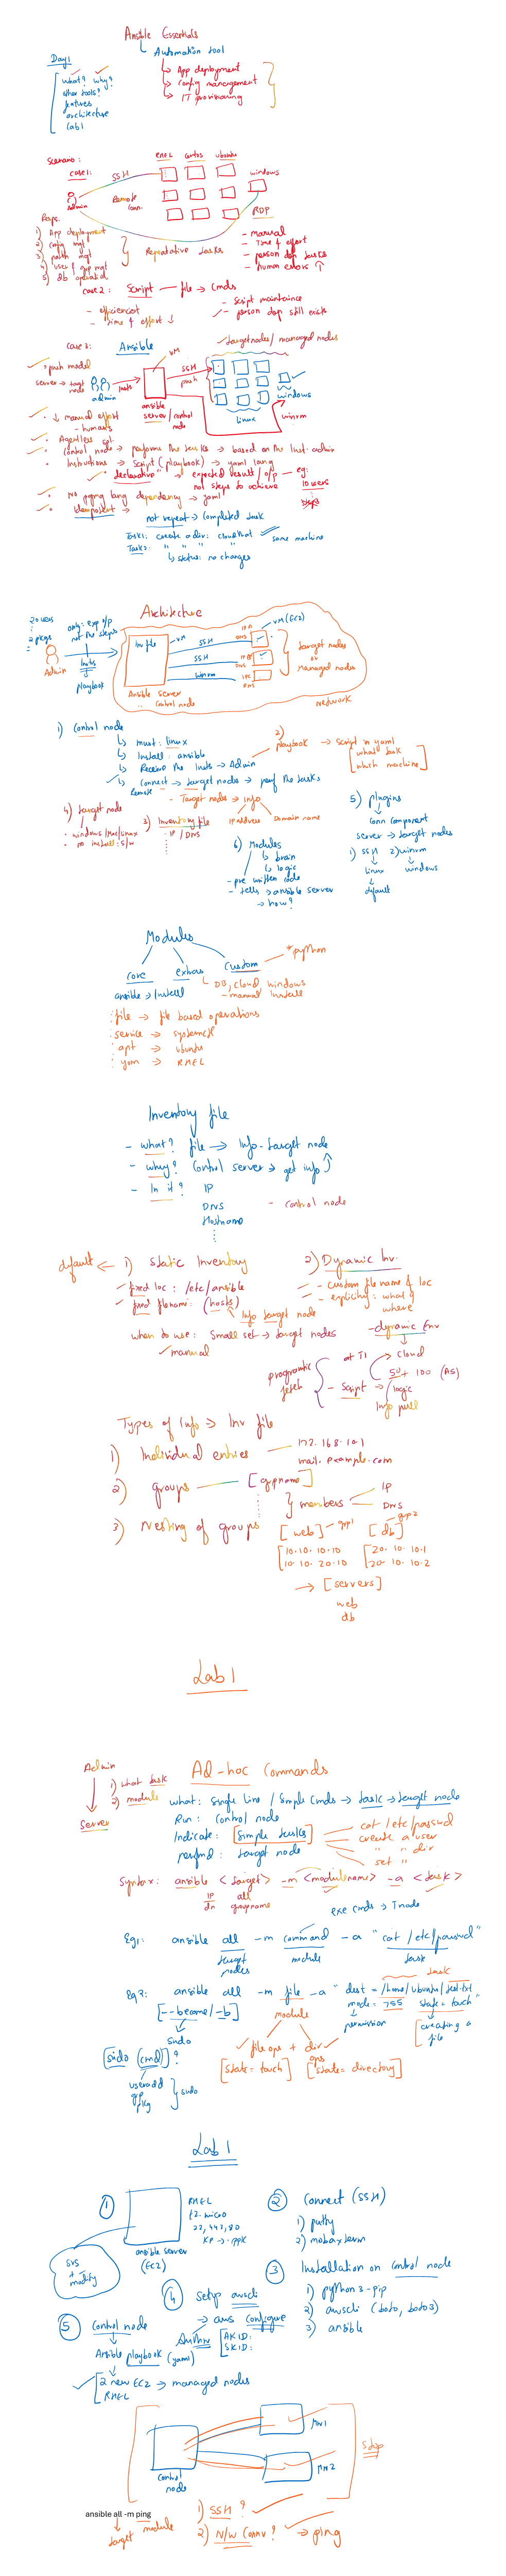 Ansible Essentials
Automation tool
App deployment
Config management
IT provisioning
Day1
what? why?
other tools?
features
architecture
Lab1
Scenario:
Case1:
SSH
RHEL
Centos
Ubuntu
windows
Admin
Remote
Conn.
RDP
Reqs:
1) App deployment
2) Config mgt
3) patch mgt
4) user & grp mgt
5) db operation
Repetative tasks
- manual
- Time & effort
- person dep tasks
- human errors ↑
Case2: Script — file → cmds
- efficiencient
- time & effort ↓
- Script maintaince
- person dep still exists
Case 3: Ansible
Target nodes / managed nodes
VM
push model
Server → target node
admin
Insts
SSH
push
windows
ansible server / control node
Linux
winrm
↓ manual effort
- humans
Agentless sol.
Control node → performs the tasks → based on the Inst: admin
Instructions → Script (playbook) → yaml lang
"declarative" → expected result / o/p — eg:
not steps to achieve
10 users
steps
No pgmg lang dependency → yaml
Idempotent →
not repeat → completed task
Task1: create a dir: cloudthat
same machine
Task2: " " "
↳ status: no changes
Architecture
20 users
2 pkgs
only: exp o/p
not the steps
Admin
Insts
playbook
Inv file
VM
SSH
SSH
winrm
IP
DNS
VM (EC2)
target nodes
or
Managed nodes
Ansible server
control node
network
1) Control node
↳ must: linux
↳ Install: ansible
↳ Receive the Insts → Admin
↳ Connect → target nodes → perf the tasks
Remote
- Target nodes → Info
IP Address
Domain name
2)
playbook → Script in yaml
[what task
which machine]
3) Inventory file
IP / DNS
4) target node
windows/mac/linux
no install: s/w
5) plugins
Conn component
server → target nodes
1) SSH 2) winrm
linux
windows
default
6) Modules
↳ brain
↳ logic
- pre written code
- tells → ansible server
→ how?
Modules
core
extras
custom
*python
ansible → Install
DB, cloud windows
- manual installe
file → file based operations
service → systemctl
apt → ubuntu
yum → RHEL
Inventory file
- what? file → Info - target node
- why? Control server → get info
- In it? IP
DNS
Hostname
- control node
default ← 1) Static Inventory
fixed loc: /etc/ansible
fixed filename: (hosts)
Info target node
when to use: Small set → target nodes
manual
2) Dynamic Inv.
- custom file name & loc
- explicitly: what & where
- dynamic Env
cloud
50 + 100 (AS)
programatic
fetch
- Script → logic
Info pull
Types of Info → Inv file
1) Individual entries
172.168.10.1
mail.example.com
2) groups — [grpname]
members
IP
DNS
3) Nesting of groups
[web] - grp1
[db] grp2
10.10.10.10
10.10.20.10
20.10.10.1
20.10.10.2
→ [servers]
web
db
Lab 1
Admin
1) what task
2) module
Server
Ad-hoc Commands
what: Single line / Simple cmds → task → target node
Run: Control node
Indicate: [Simple tasks]
perfmd: target node
cat /etc/passwd
create a user
" " dir
set "
Syntax: ansible <target> -m <modulename> -a <task>
IP
dn
all
grpname
exe cmds → T node
Eg1: ansible all -m command -a "cat /etc/passwd"
target nodes
module
task
Eg2: ansible all -m file -a "dest=/home/ubuntu/test.txt
task
[--become/-b]
module
mode=755 state=touch"
permission
[creating a file
sudo
[sudo (cmd)]?
useradd
grp
pkg
sudo
file ops + dir ops
[state=touch] [state=directory]
Lab 1
1
RHEL
t2.micro
22, 443, 80
KP → .ppk
ansible server
(EC2)
2 Connect (SSH)
1) putty
2) mobaxterm
3 Installation on control node
1) python3-pip
2) awscli (boto, boto3)
3) ansible
4 Setup awscli
→ aws configure
AKID:
SKID:
5 Control node
Ansible playbook (yaml)
2 new EC2 → managed nodes
RHEL
Control node
MN1
MN2
Setup
ansible all -m ping
target
module
1) SSH ?
2) N/W Conn? → ping